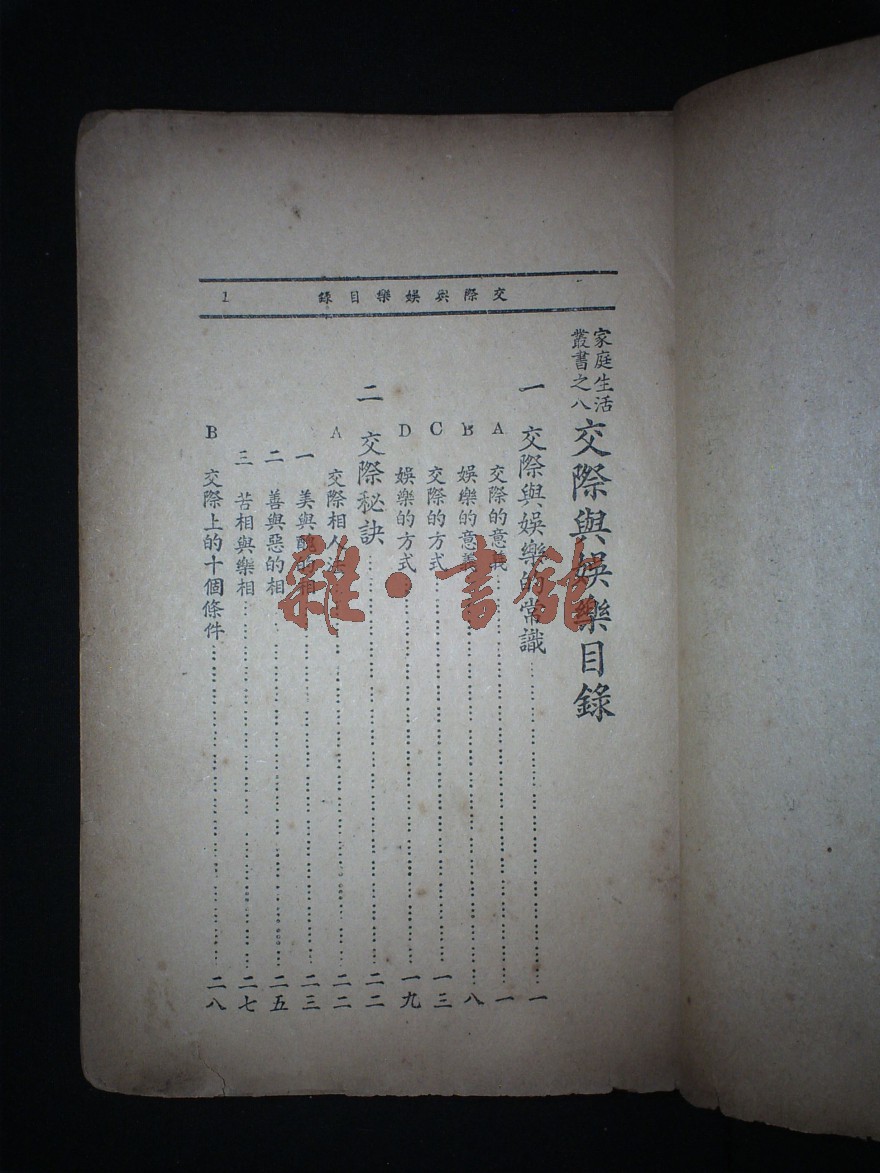 交際與娛樂目錄 1
家庭生活
叢書之八
交際與娛樂目錄
一 交際與娛樂的常識……一
A 交際的意義……一
B 娛樂的意義……八
C 交際的方式……一三
D 娛樂的方式……一九
二 交際秘訣……二二
A 交際相人法……二二
一 美與醜的相……二三
二 善與惡的相……二五
三 苦相與樂相……二七
B 交際上的十個條件……二八
雜·書館